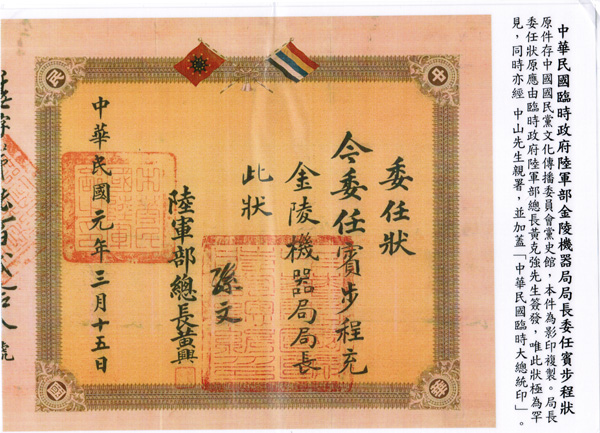 中華民國臨時政府陸軍部金陵機器局局長委任賓步程狀
原件存中國國民黨文化傳播委員會黨史館，本件為影印複製。局長
委任狀原應由臨時政府陸軍部總長黃克強先生簽發，唯此狀極為罕
見，同時亦經 中山先生親署，並加蓋「中華民國臨時大總統印」。
中
民
委任狀
令委任賓步程充
金陵機器局局長
此狀
孫文
陸軍部總長黃興
中華民國元年三月十五日
號